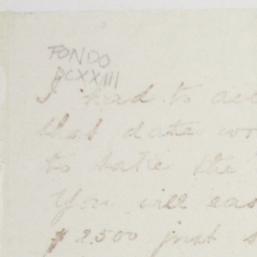 FONDO
DCXXIII
I had to
that date
to take the
You will eas
$2.500 just s